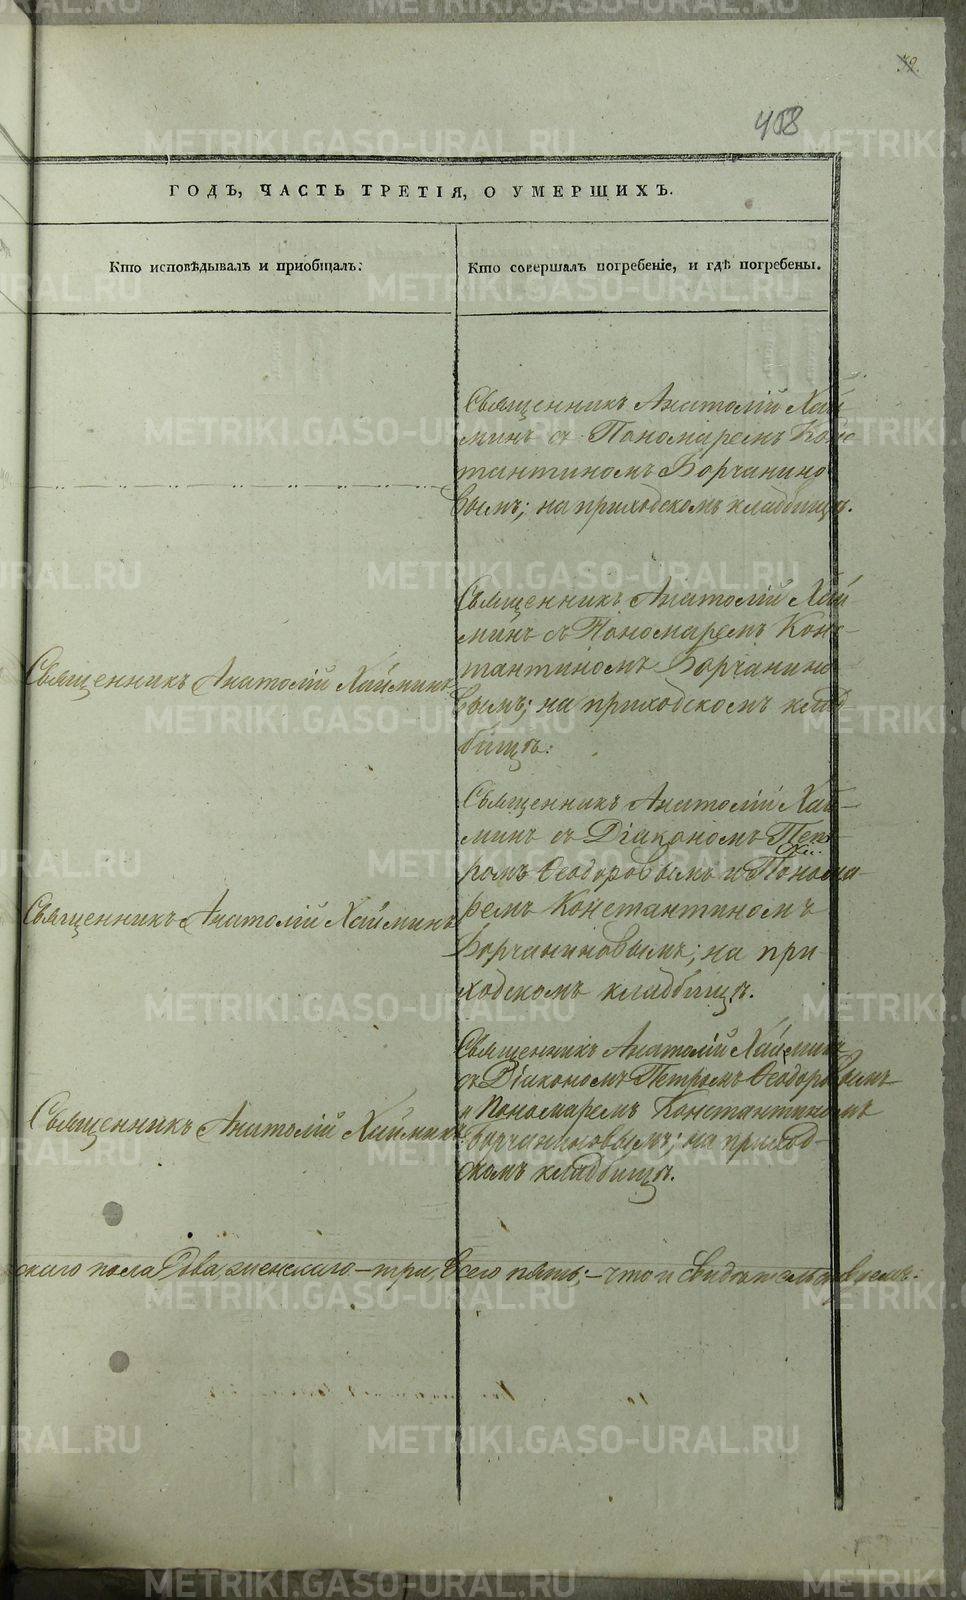 39.
458
ГОДЪ, ЧАСТЬ ТРЕТІЯ, О УМЕРШИХЪ.
Кто исповѣдывалъ и приобщалъ:
Кто совершалъ погребеніе, и гдѣ погребены.
Священникъ Анатолій Хай
минъ съ Пономаремъ Конс
тантиномъ Борчанино
вымъ; на приходскомъ кладбищѣ.
Священникъ Анатолій Хайминъ
Священникъ Анатолій Хай
минъ съ Пономаремъ Конс-
тантиномъ Борчанино
вымъ; на приходскомъ клад
бищѣ.
Священникъ Анатолій Хайминъ
Священникъ Анатолій Хай-
минъ съ Діакономъ Пет-
ромъ Ѳеодоровымъ и Понома
ремъ Константиномъ
Борчаниновымъ; на при
ходскомъ кладбищѣ.
Священникъ Анатолій Хайминъ
Священникъ Анатолій Хайминъ
съ Діакономъ Петромъ Ѳеодоровымъ
и Пономаремъ Константиномъ
Борчаниновымъ; на приход-
скомъ кладбищѣ.
скаго пола два, женскаго – три, всего пять; – что и свидѣтельствуемъ:
METRIKI.GASO-URAL.RU